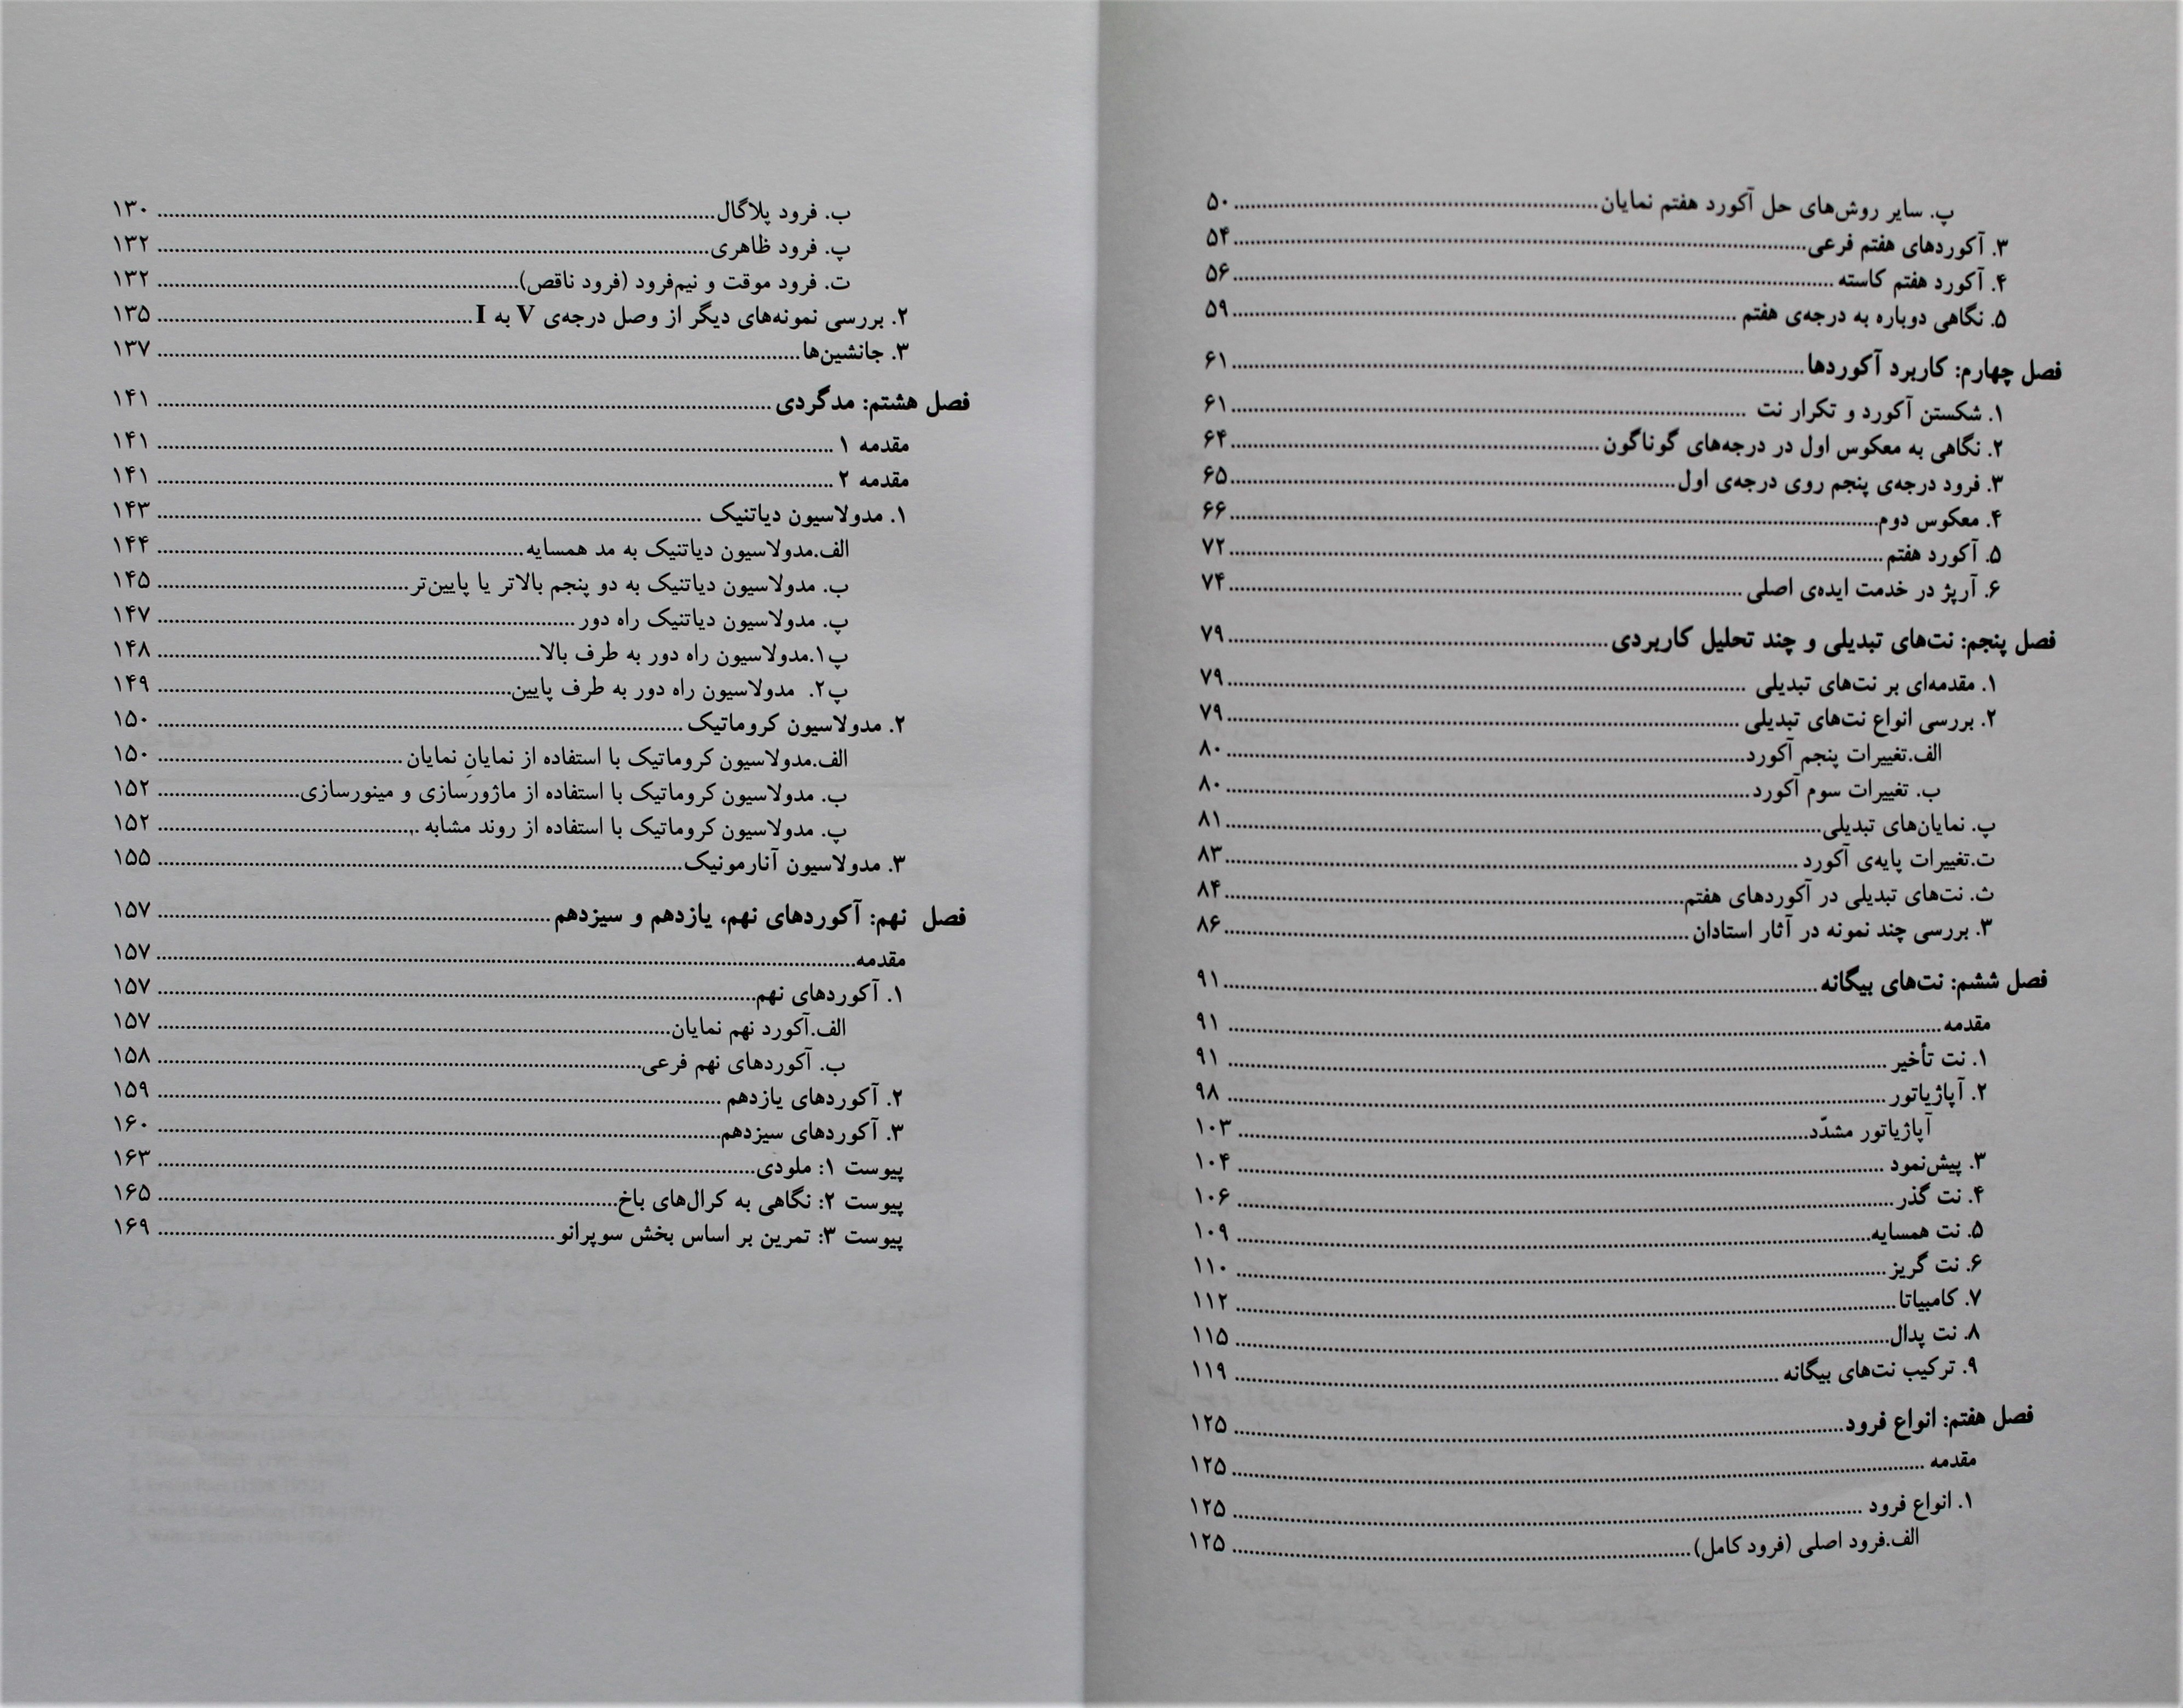 پ. سایر روش‌های حل آکورد هفتم نمایان ........ ۵۰
۳. آکوردهای هفتم فرعی ........ ۵۴
۴. آکورد هفتم کاسته ........ ۵۶
۵. نگاهی دوباره به درجه‌ی هفتم ........ ۵۹
فصل چهارم: کاربرد آکوردها ........ ۶۱
۱. شکستن آکورد و تکرار نت ........ ۶۱
۲. نگاهی به معکوس اول در درجه‌های گوناگون ........ ۶۴
۳. فرود درجه‌ی پنجم روی درجه‌ی اول ........ ۶۵
۴. معکوس دوم ........ ۶۶
۵. آکورد هفتم ........ ۷۲
۶. آرپژ در خدمت ایده‌ی اصلی ........ ۷۴
فصل پنجم: نت‌های تبدیلی و چند تحلیل کاربردی ........ ۷۹
۱. مقدمه‌ای بر نت‌های تبدیلی ........ ۷۹
۲. بررسی انواع نت‌های تبدیلی ........ ۷۹
الف.تغییرات پنجم آکورد ........ ۸۰
ب. تغییرات سوم آکورد ........ ۸۰
پ. نمایان‌های تبدیلی ........ ۸۱
ت.تغییرات پایه‌ی آکورد ........ ۸۳
ث. نت‌های تبدیلی در آکوردهای هفتم ........ ۸۴
۳. بررسی چند نمونه در آثار استادان ........ ۸۶
فصل ششم: نت‌های بیگانه ........ ۹۱
مقدمه ........ ۹۱
۱. نت تأخیر ........ ۹۱
۲. آپاژیاتور ........ ۹۸
آپاژیاتور مشدّد ........ ۱۰۳
۳. پیش‌نمود ........ ۱۰۴
۴. نت گذر ........ ۱۰۶
۵. نت همسایه ........ ۱۰۹
۶. نت گریز ........ ۱۱۰
۷. کامبیاتا ........ ۱۱۲
۸. نت پدال ........ ۱۱۵
۹. ترکیب نت‌های بیگانه ........ ۱۱۹
فصل هفتم: انواع فرود ........ ۱۲۵
مقدمه ........ ۱۲۵
۱. انواع فرود ........ ۱۲۵
الف.فرود اصلی (فرود کامل) ........ ۱۲۵
ب. فرود پلاگال ........ ۱۳۰
پ. فرود ظاهری ........ ۱۳۲
ت. فرود موقت و نیم‌فرود (فرود ناقص) ........ ۱۳۲
۲. بررسی نمونه‌های دیگر از وصل درجه‌ی V به I ........ ۱۳۵
۳. جانشین‌ها ........ ۱۳۷
فصل هشتم: مدگردی ........ ۱۴۱
مقدمه ۱ ........ ۱۴۱
مقدمه ۲ ........ ۱۴۱
۱. مدولاسیون دیاتنیک ........ ۱۴۳
الف.مدولاسیون دیاتنیک به مد همسایه ........ ۱۴۴
ب. مدولاسیون دیاتنیک به دو پنجم بالاتر یا پایین‌تر ........ ۱۴۵
پ. مدولاسیون دیاتنیک راه دور ........ ۱۴۷
پ۱.مدولاسیون راه دور به طرف بالا ........ ۱۴۸
پ۲. مدولاسیون راه دور به طرف پایین ........ ۱۴۹
۲. مدولاسیون کروماتیک ........ ۱۵۰
الف.مدولاسیون کروماتیک با استفاده از نمایانِ نمایان ........ ۱۵۰
ب. مدولاسیون کروماتیک با استفاده از ماژورسازی و مینورسازی ........ ۱۵۲
پ. مدولاسیون کروماتیک با استفاده از روند مشابه ........ ۱۵۲
۳. مدولاسیون آنارمونیک ........ ۱۵۵
فصل نهم: آکوردهای نهم، یازدهم و سیزدهم ........ ۱۵۷
مقدمه ........ ۱۵۷
۱. آکوردهای نهم ........ ۱۵۷
الف.آکورد نهم نمایان ........ ۱۵۷
ب. آکوردهای نهم فرعی ........ ۱۵۸
۲. آکوردهای یازدهم ........ ۱۵۹
۳. آکوردهای سیزدهم ........ ۱۶۰
پیوست ۱: ملودی ........ ۱۶۳
پیوست ۲: نگاهی به کرال‌های باخ ........ ۱۶۵
پیوست ۳: تمرین بر اساس بخش سوپرانو ........ ۱۶۹